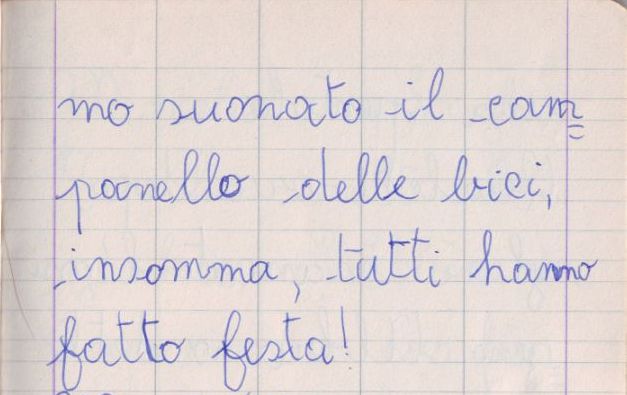 mo suonato il cam=
panello delle bici,
insomma, tutti hanno
fatto festa!